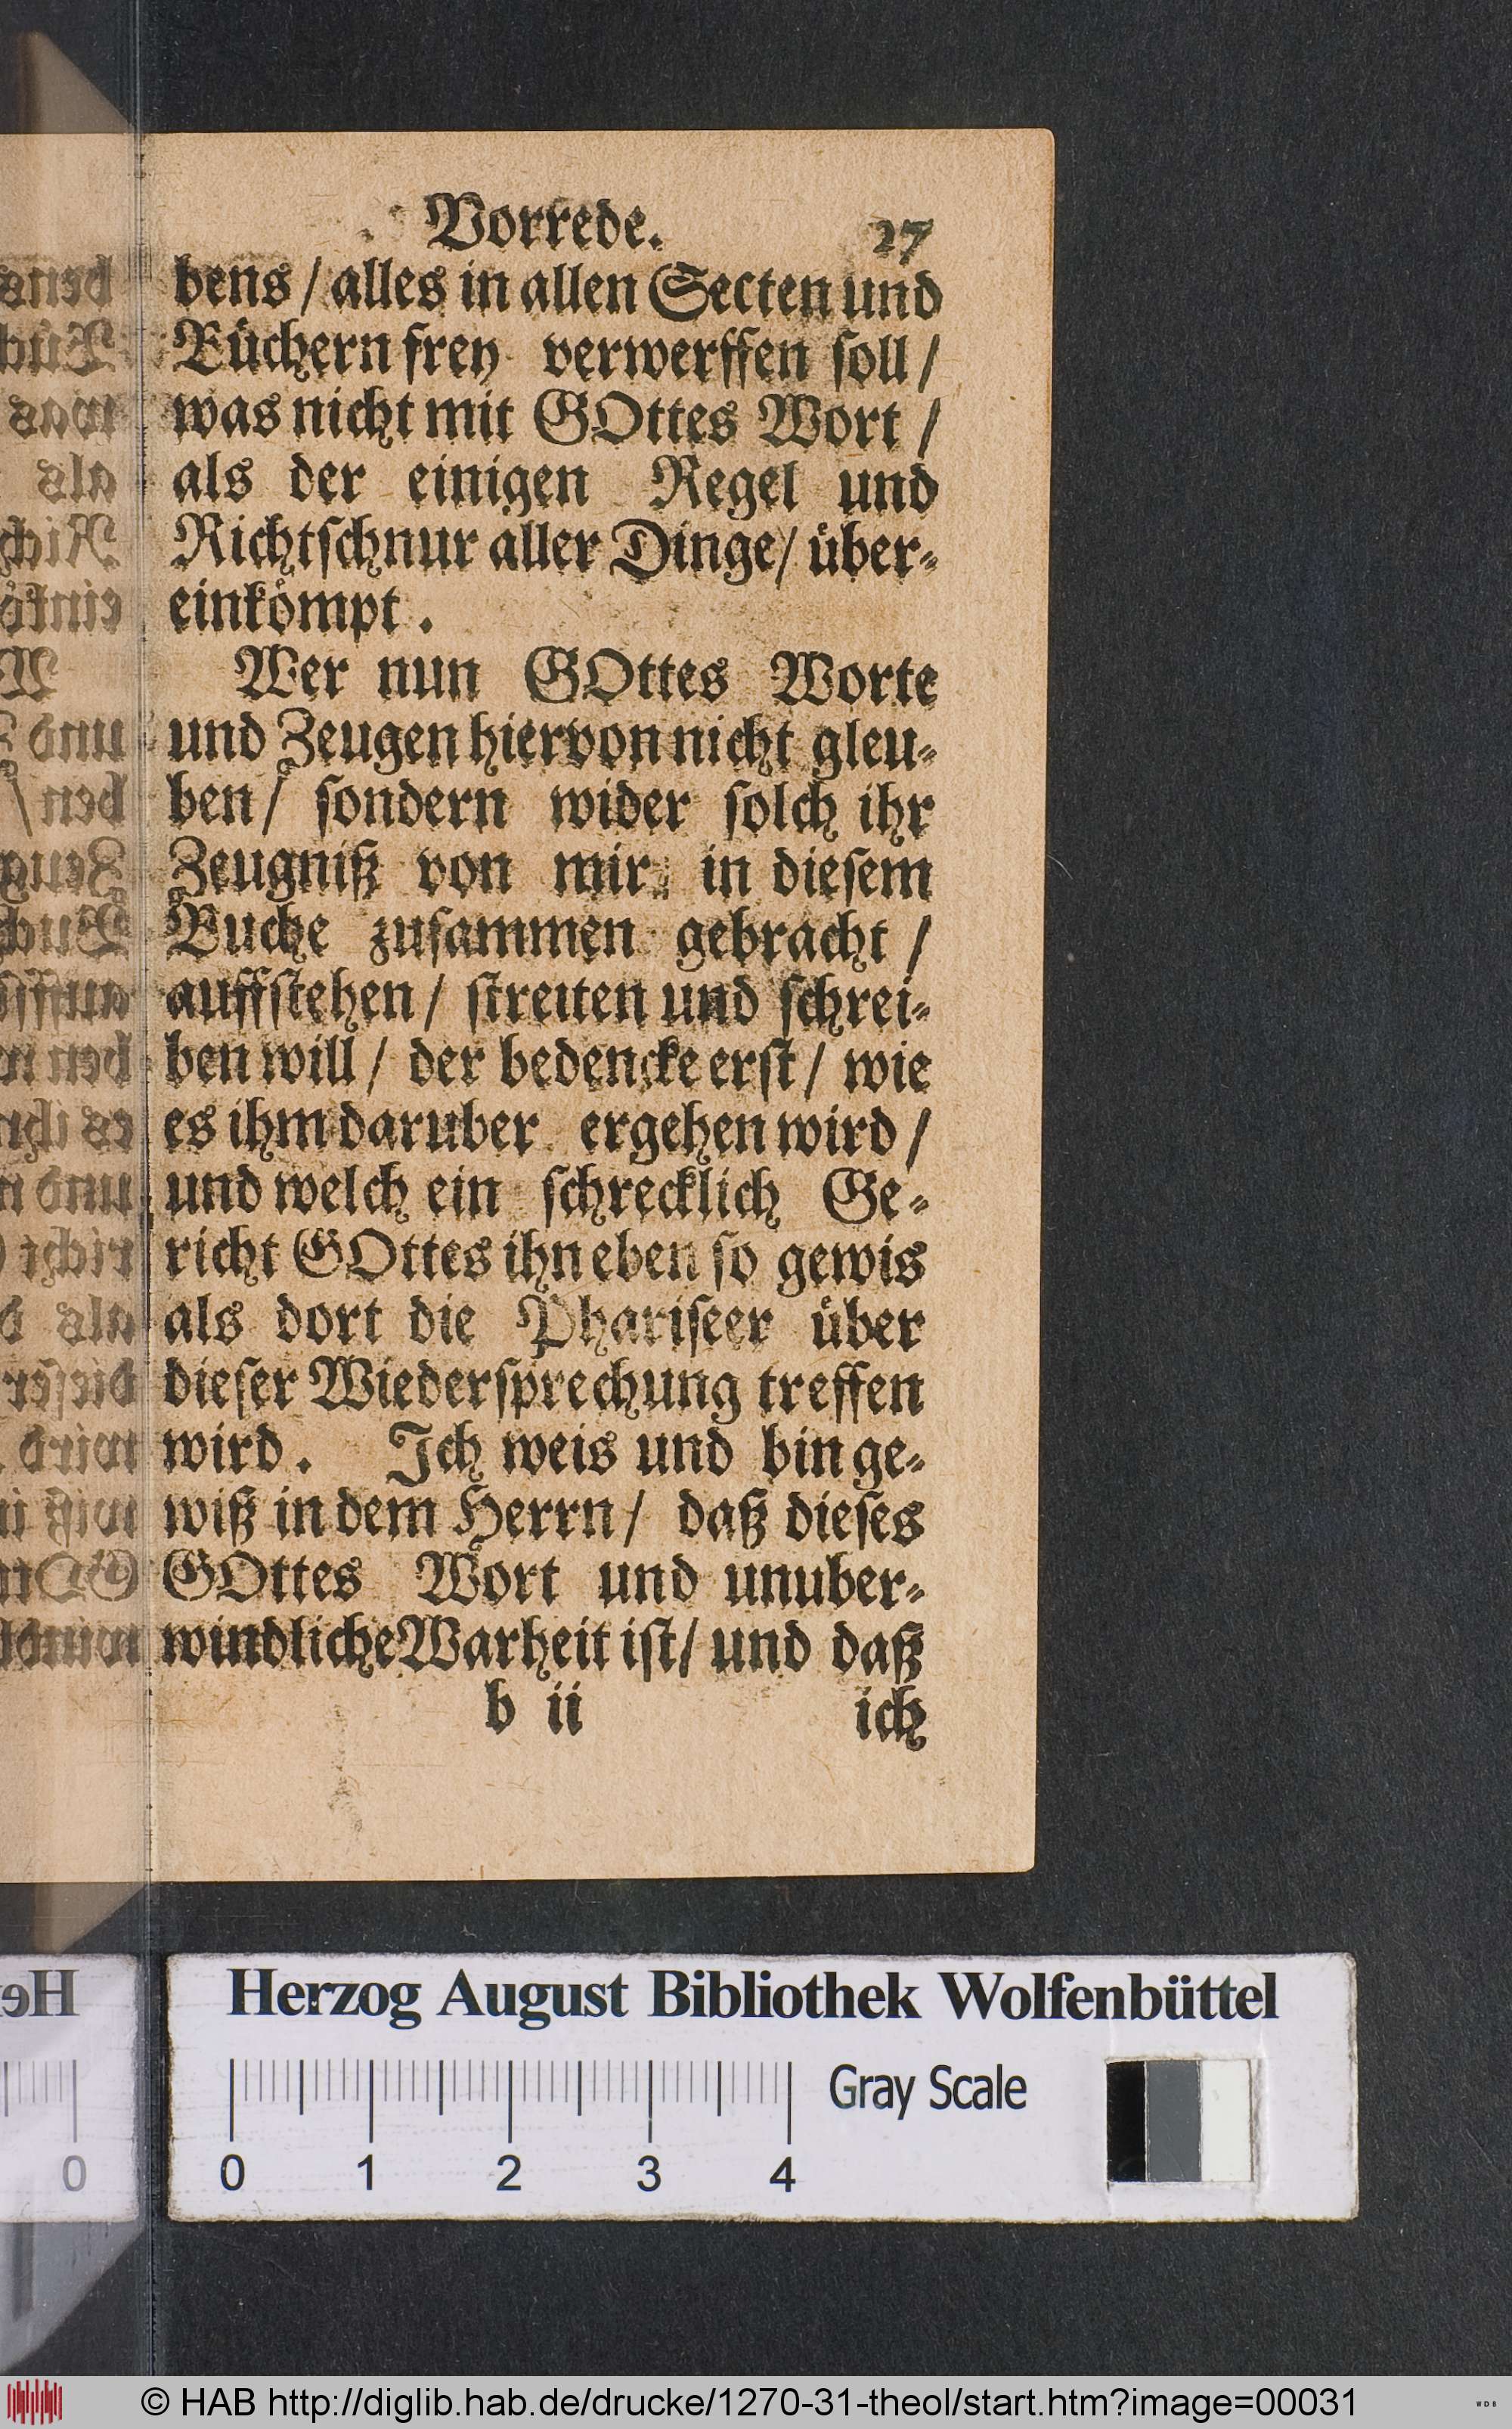 Vorrede. 27
bens / alles in allen Secten und
Büchern frey verwerffen soll /
was nicht mit GOttes Wort /
als der einigen Regel und
Richtschnur aller Dinge / über-
einkömpt.
Wer nun GOttes Worte
und Zeugen hiervon nicht gleu-
ben / sondern wider solch ihr
Zeugniß von mir in diesem
Buche zusammen gebracht /
auffstehen / streiten und schrei-
ben will / der bedencke erst / wie
es ihm daruber ergehen wird /
und welch ein schrecklich Ge-
richt GOttes ihn eben so gewis
als dort die Phariseer über
dieser Wiedersprechung treffen
wird. Ich weis und bin ge-
wiß in dem Herrn / daß dieses
GOttes Wort und unuber-
windliche Warheit ist / und daß
b ii ich
Herzog August Bibliothek Wolfenbüttel
Gray Scale
0 1 2 3 4
© HAB http://diglib.hab.de/drucke/1270-31-theol/start.htm?image=00031